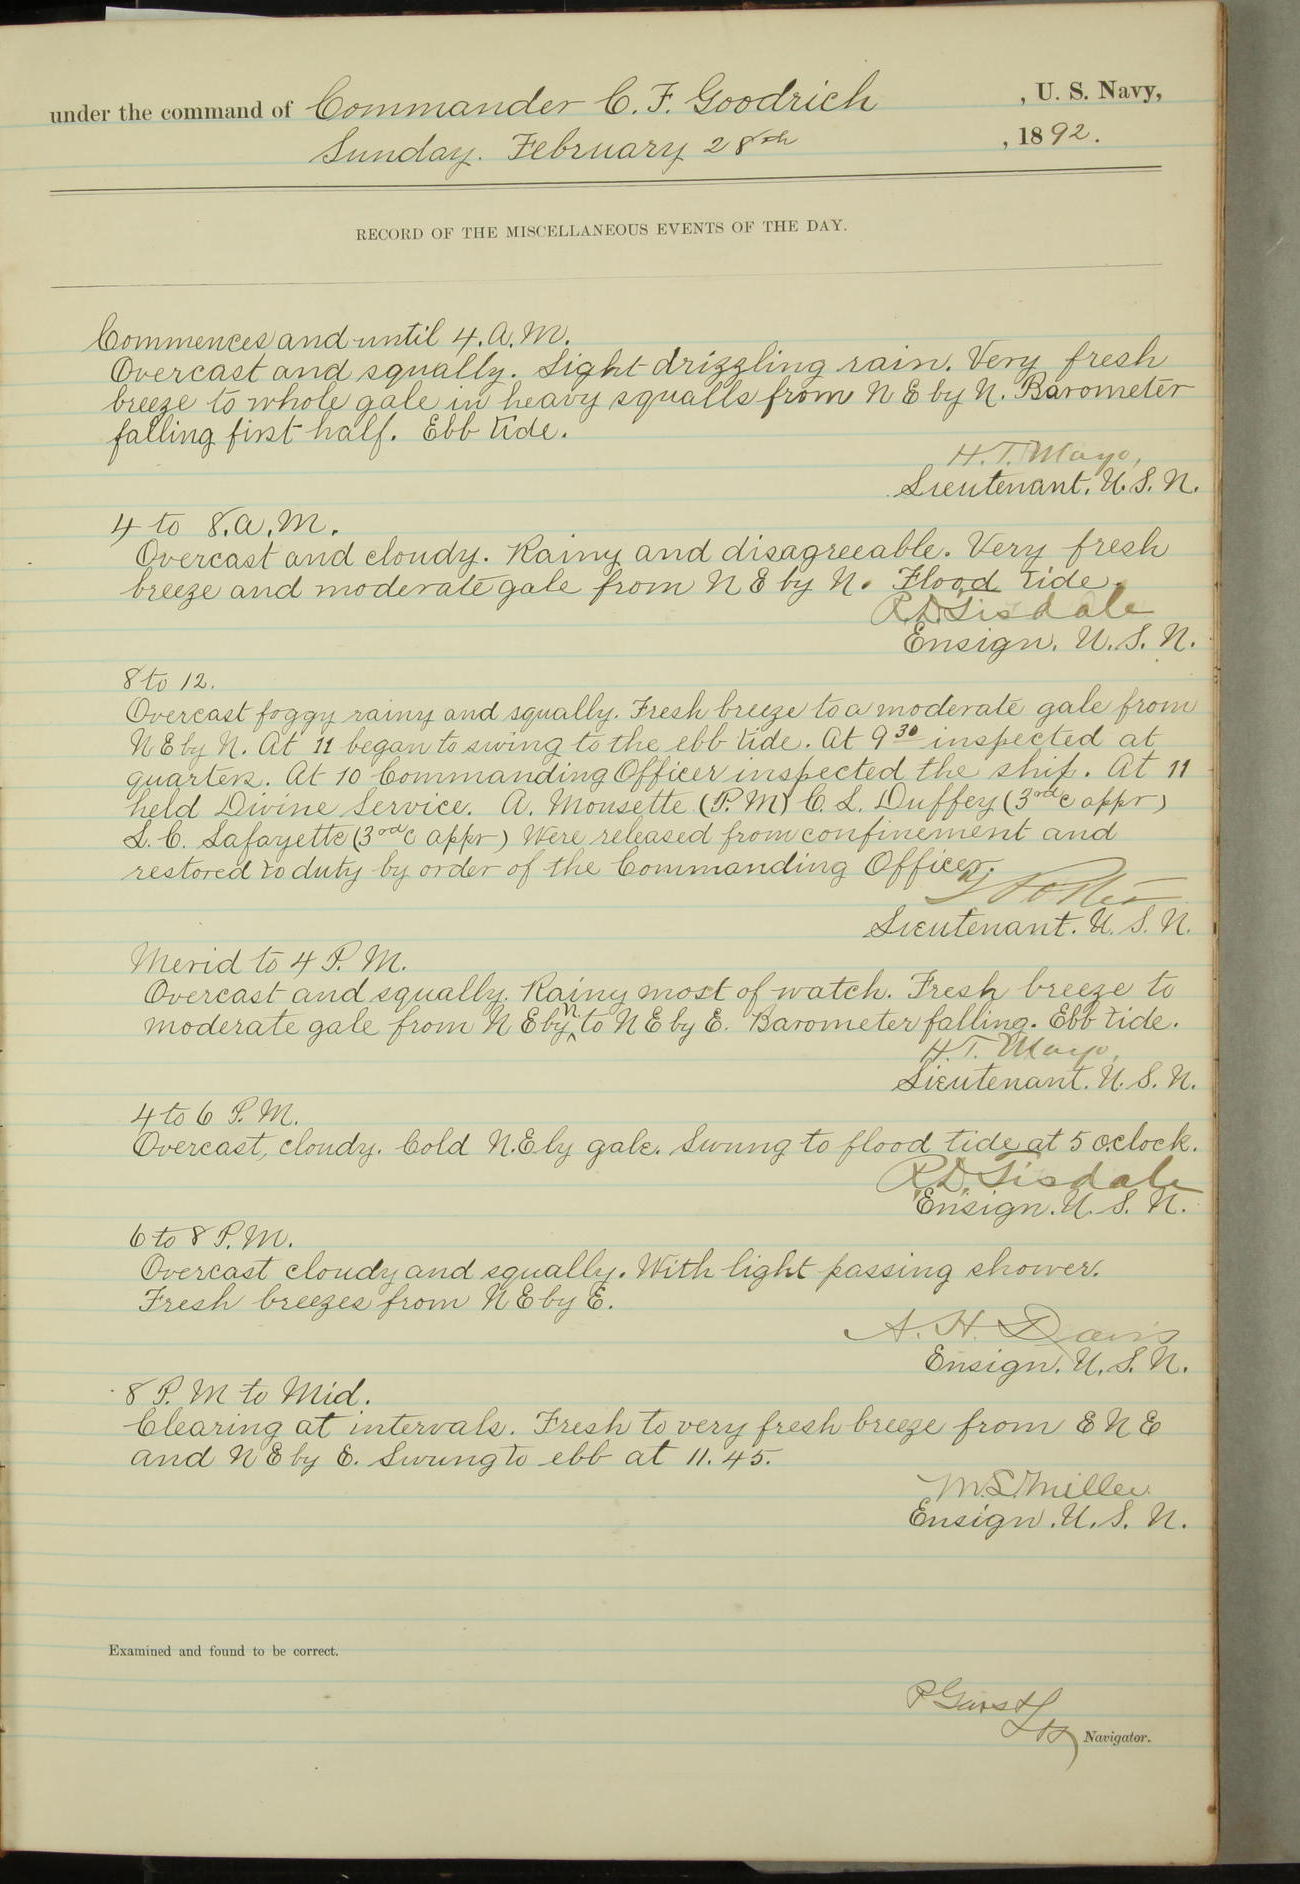 under the command of Commander C. F. Goodrich , U. S. Navy,
Sunday. February 28th , 1892.
RECORD OF THE MISCELLANEOUS EVENTS OF THE DAY.
Commences and until 4. A. M.
Overcast and squally. Light drizzling rain. Very fresh
breeze to whole gale in heavy squalls from N E by N. Barometer
falling first half. Ebb tide.
H. T. Mayo,
Lieutenant. U. S. N.
4 to 8. a. M.
Overcast and cloudy. Rainy and disagreeable. Very fresh
breeze and moderate gale from N E by N. Flood tide.
R D Tisdale
Ensign. U. S. N.
8 to 12.
Overcast foggy rainy and squally. Fresh breeze to a moderate gale from
N E by N. At 11 began to swing to the ebb tide. At 9 30 inspected at
quarters. At 10 Commanding Officer inspected the ship. At 11
held Divine Service. A. Mousette (P. M) C. L. Duffey (3rd c appr)
L. C. Lafayette (3rd c appr) Were released from confinement and
restored to duty by order of the Commanding Officer.
Lieutenant. U. S. N.
Merid to 4 P. M.
Overcast and squally. Rainy most of watch. Fresh breeze to
moderate gale from N E by n. to N E by E. Barometer falling. Ebb tide.
H. T. Mayo,
Lieutenant. U. S. N.
4 to 6 P. M.
Overcast, cloudy. Cold N. E ly gale. Swung to flood tide at 5 o.clock.
R. D. Tisdale
Ensign. U. S. N.
6 to 8 P. M.
Overcast cloudy and squally. With light passing shower.
Fresh breezes from N E by E.
A. H. Davis
Ensign. U. S. N.
8 P. M to Mid.
Clearing at intervals. Fresh to very fresh breeze from E N E
and N E by E. Swung to ebb at 11. 45.
M. L. Miller
Ensign. U. S. N.
Examined and found to be correct.
P Garst
Lt Navigator.